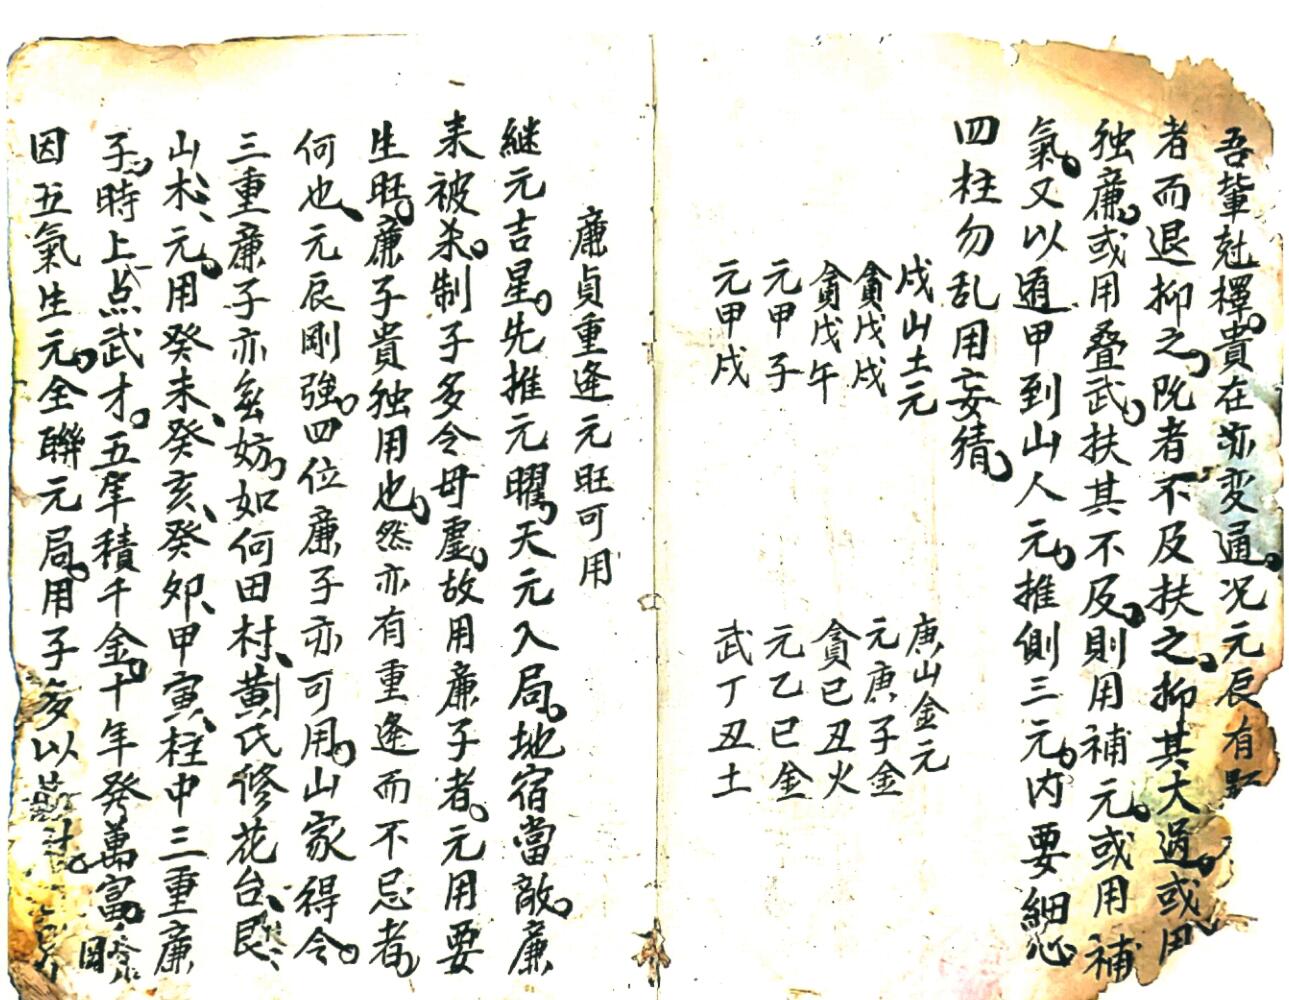 吾輩尅擇。貴在亦变通。况元辰有
者而退抑之。既者不及扶之。抑其大過。或用
独廉。或用叠武。扶其不及。則用補元。或用補
氣。又以遁甲到山人元。推側三元。内要細心
四柱勿乱用妄猜。
戌山土元
貪戊戌
貪戊午
元甲子
元甲戌
庚山金元
元庚子金
貪已丑火
元乙巳金
武丁丑土
廉貞重逢元旺可用
継元吉星。先推元曜。天元入局。地宿當敵。廉
来被杀。制子多令母虚。故用廉子者。元用要
生旺。廉子貴独用也。然亦有重逢而不忌者。
何也、元辰剛強。四位廉子亦可用。山家得令。
三重廉子亦無妨。如何田村、黄氏修花台、艮
山木、元。用癸未、癸亥、癸卯、甲寅、柱中三重廉
子。時上一点武才。五年積千金。十年發萬富。
因五氣生元。全聯元局。用子多以